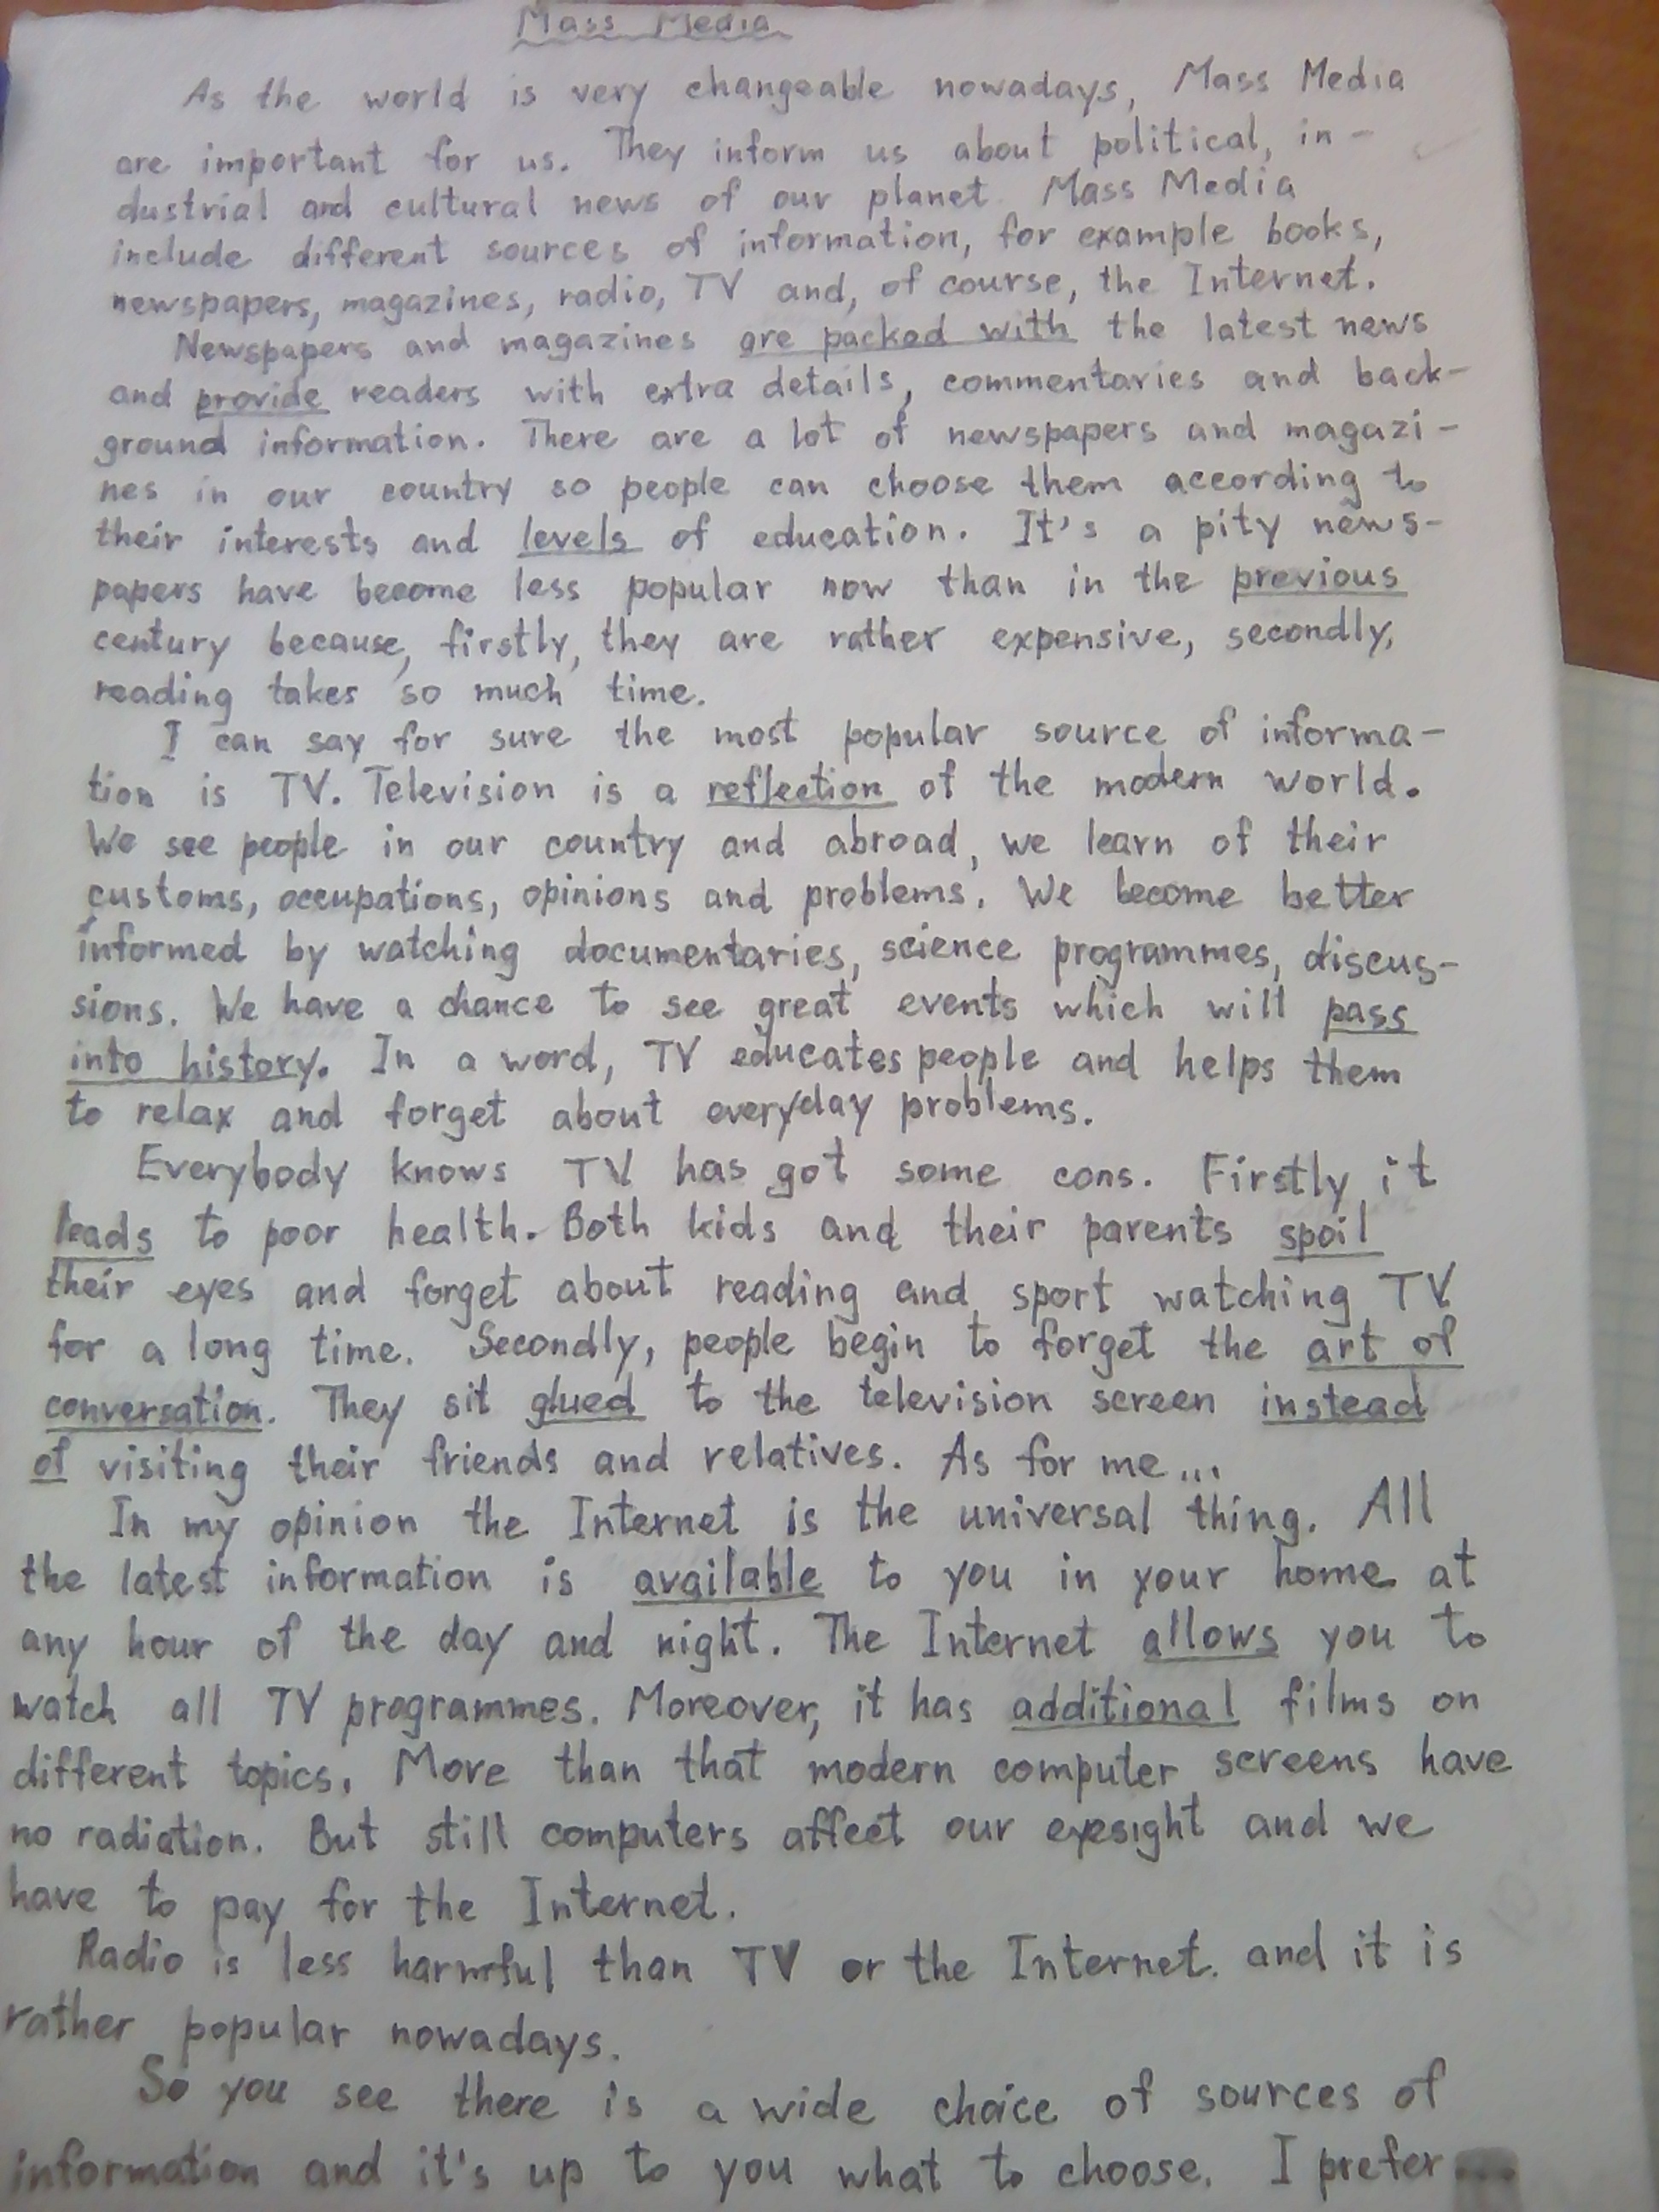 Mass Media
As the world is very changeable nowadays, Mass Media
are important for us. They inform us about political, in-
dustrial and cultural news of our planet. Mass Media
include different sources of information, for example books,
newspapers, magazines, radio, TV and, of course, the Internet.
Newspapers and magazines are packed with the latest news
and provide readers with extra details, commentaries and back-
ground information. There are a lot of newspapers and magazi-
nes in our country so people can choose them according to
their interests and levels of education. It's a pity news-
papers have become less popular now than in the previous
century because, firstly, they are rather expensive, secondly,
reading takes so much time.
I can say for sure the most popular source of informa-
tion is TV. Television is a reflection of the modern world.
We see people in our country and abroad, we learn of their
customs, occupations, opinions and problems. We become better
informed by watching documentaries, science programmes, discus-
sions. We have a chance to see great events which will pass
into history. In a word, TV educates people and helps them
to relax and forget about everyday problems.
Everybody knows TV has got some cons. Firstly, it
leads to poor health. Both kids and their parents spoil
their eyes and forget about reading and sport watching TV
for a long time. Secondly, people begin to forget the art of
conversation. They sit glued to the television screen instead
of visiting their friends and relatives. As for me...
In my opinion the Internet is the universal thing. All
the latest information is available to you in your home at
any hour of the day and night. The Internet allows you to
watch all TV programmes. Moreover, it has additional films on
different topics. More than that modern computer screens have
no radiation. But still computers affect our eyesight and we
have to pay for the Internet.
Radio is less harmful than TV or the Internet. and it is
rather popular nowadays.
So you see there is a wide choice of sources of
information and it's up to you what to choose. I prefer ...